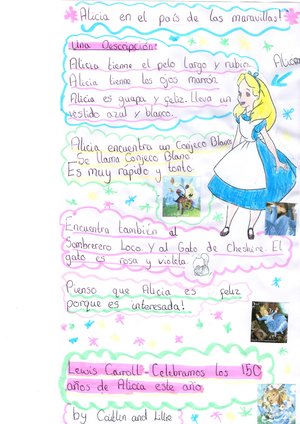 Alicia en el país de las maravillas!
Una Descripción:
Alicia tienne el pelo largo y rubia.
Alicia tienne los ojos marrón.
Alicia es guapa y feliz. lleva un
vestido azul y blanco.
Alicia
Alicia encuentra un Conjeco Blanco
Se llama Conjeco Blano
Es muy rapido y tonto.
Encuentra también al
Sombrerero Loco y al Gato de Cheshire. El
gato es rosa y violeta.
Pienso que Alicia es feliz
porque es interesada!
Lewis Carroll - Celebramos los 150
años de Alicia este año
by Caitlin and Lillie